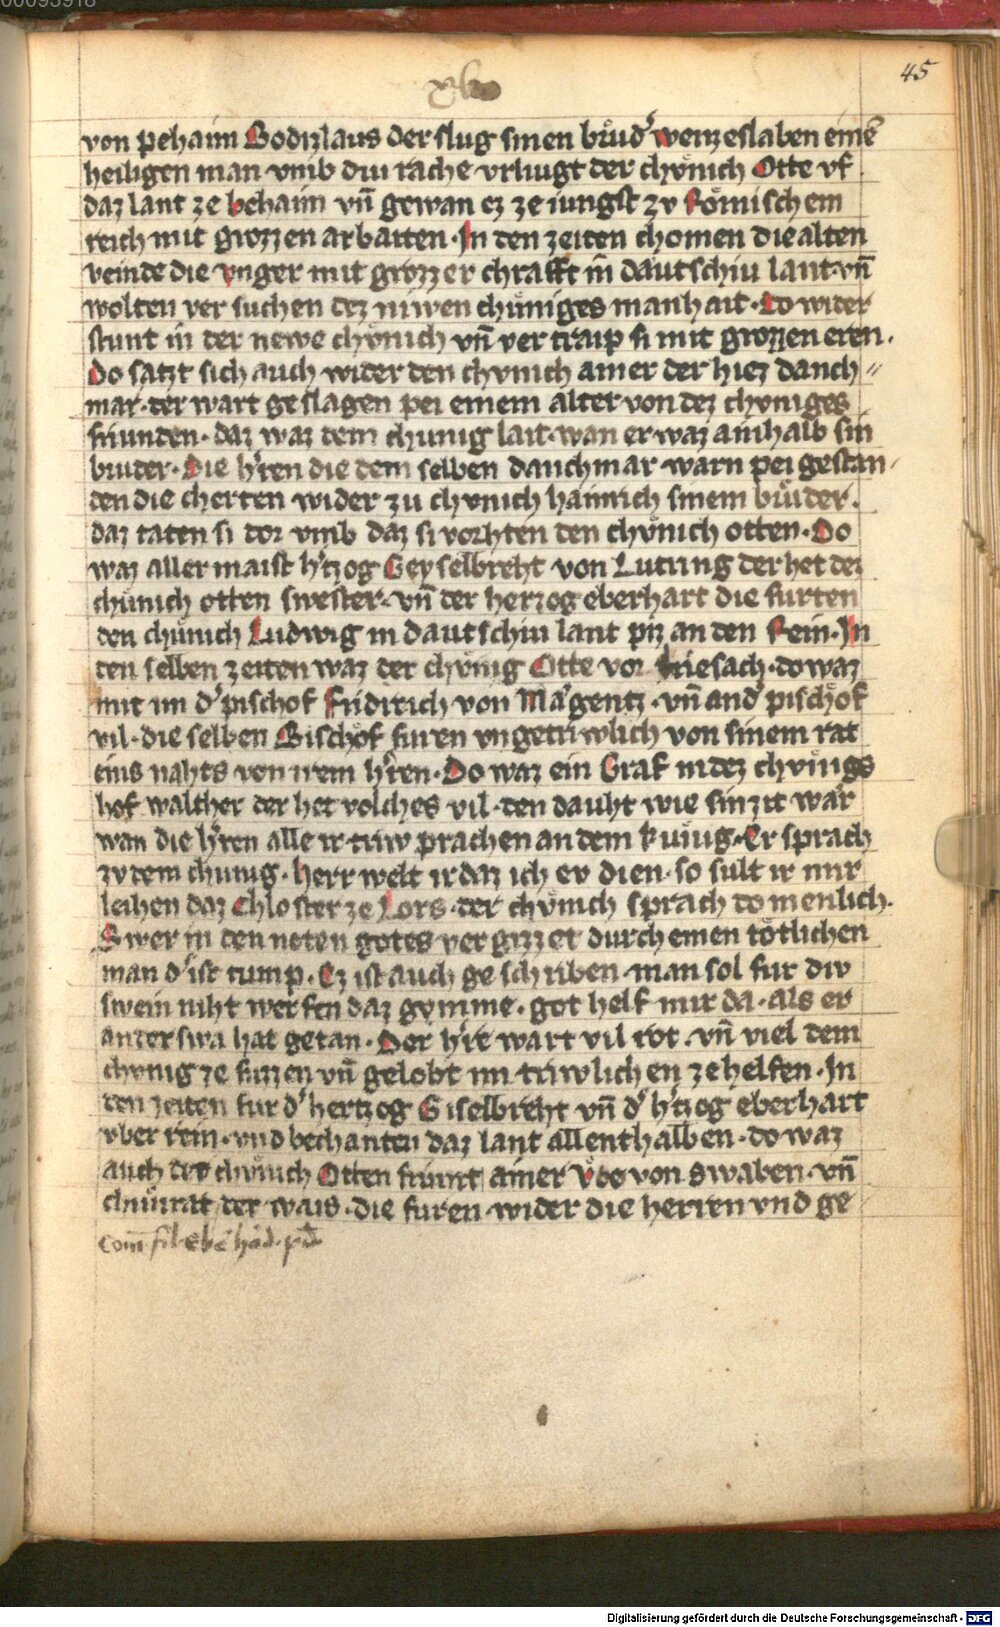 00093918
45
xlv
von pehaim Bodizlaus der slug sinen bruͦdˀ wenzeslaben einē
heiligen man vmb diu rache vrliugt der chuͤnich Otte vf
daz lant ze behaim vn̄ gewan ez ze iungst zv Roͤmischem
reich mit grozzen arbaiten · In den zeiten chomen die alten
veinde die vnger mit grozzer chrafft in dautschiu lant vn̄
wolten ver suchen dez niwen chuͤniges manhait · Do wider
stunt in der newe chuͤnich vn̄ ver traip si mit grozzen eren ·
Do satzt sich auch wider den chvnich ainer der hiez danch〃
mar · der wart geslagen pei einem alter von dez chvniges
friunden · daz waz dem chunig lait · wan er waz ainhalb sin
bruder · Die hˀren die dem selben danchmar warn pei gestan
den die cherten wider zu chvnich hainrich sinem bruͦder ·
daz taten si dor vmb daz si vorhten den chuͤnich otten · Do
waz aller maist hˀtzog Geyselbreht von Lutring der het dez
chuͤnich otten swester · vn̄ der herzog eberhart die furten
den chuͤnich Ludwig in dautschiu lant piz an den Rein · In
den selben zeiten waz der chuͤnig Otte vor briesach · do waz
mit im dˀ pischof Fridrich von Maͤgentz · vn̄ andˀ pischoͤf
vil · die selben Bischoͤf furen vngetriwlich von sinem rat
eins nahts von irem hˀren · Do waz ein Graf in dez chvnigs
hof walther der het volches vil · den dauht wie sin zit waͤr
wan die hˀren alle ir triw prachen an dem kuͤnig · Er sprach
zv dem chunig · herr welt ir daz ich ev dien · so sult ir mir
leihen daz Chloster ze Lors · der chuͤnich sprach do menlich ·
Swer in den noten gotes vergizzet durch einen toͤtlichen
man dˀ ist tump · Ez ist auch geschriben · man sol fur div
swein niht werfen daz gymme · got helf mir da · als er
anderswa hat getan · Der hˀre wart vil rot · vn̄ viel dem
chvnig ze fuzzen vn̄ gelobt im triwlichen ze helfen · In
den zeiten fur dˀ hertzog Giselbreht vn̄ dˀ hˀtzog eberhart
vber rein · vnd bechanten daz lant allenthalben · do waz
auch dez chuͤnich Otten friunt ainer Vͦto von swaben · vn̄
chuͦnrat der wais · die furen wider die herren vnd ge
Digitalisierung gefördert durch die Deutsche Forschungsgemeinschaft · DFG